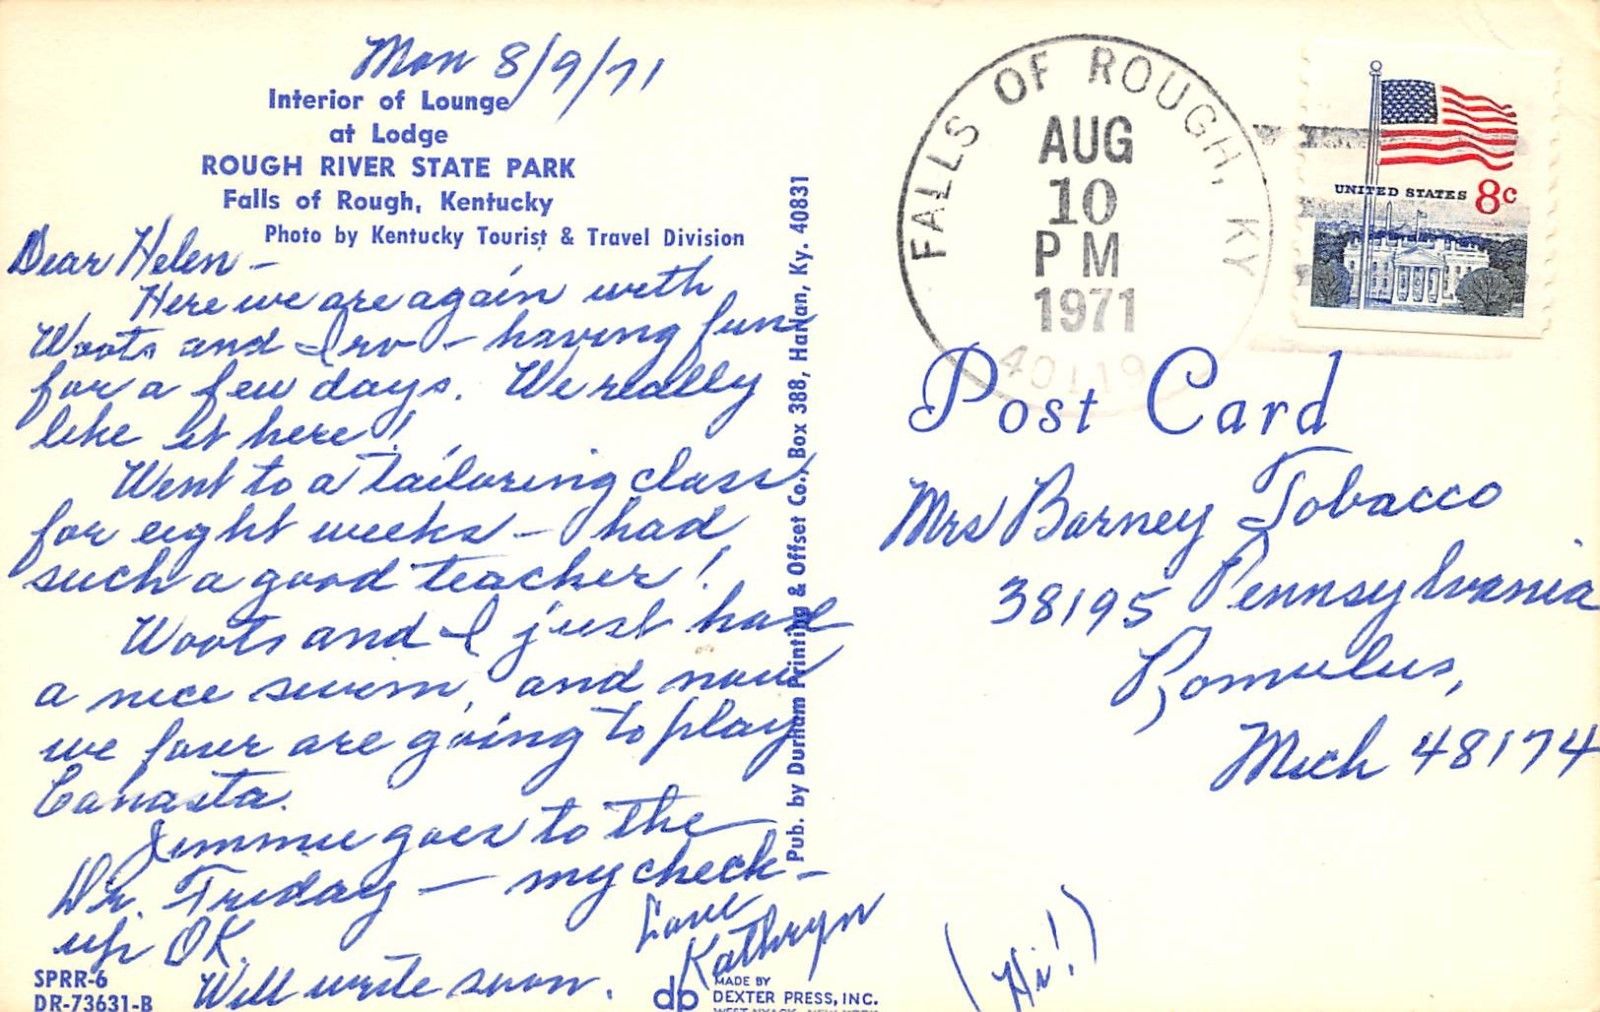 Mon 8/9/71
Interior of Lounge
at Lodge
ROUGH RIVER STATE PARK
Falls of Rough, Kentucky
Photo by Kentucky Tourist & Travel Division
Dear Helen -
Here we are again with
Woots and Irv - having fun
for a few days. We really
like it here!
Went to a tailoring class
for eight weeks - had
such a good teacher!
Woots and I just had
a nice swim, and now
we four are going to play
Canasta.
Jimmie goes to the
Dr. Friday - my check-
up OK.
Will write soon.
Love
Kathryn
SPRR-6
DR-73631-B
Pub. by Durham Printing & Offset Co., Box 388, Harlan, Ky. 40831
db
MADE BY
DEXTER PRESS, INC.
WEST NYACK, NEW YORK
FALLS OF ROUGH, KY
AUG
10
PM
1971
40119
UNITED STATES 8c
Post Card
Mrs Barney Tobacco
38195 Pennsylvania
Romulus,
Mich 48174
(Hi!)